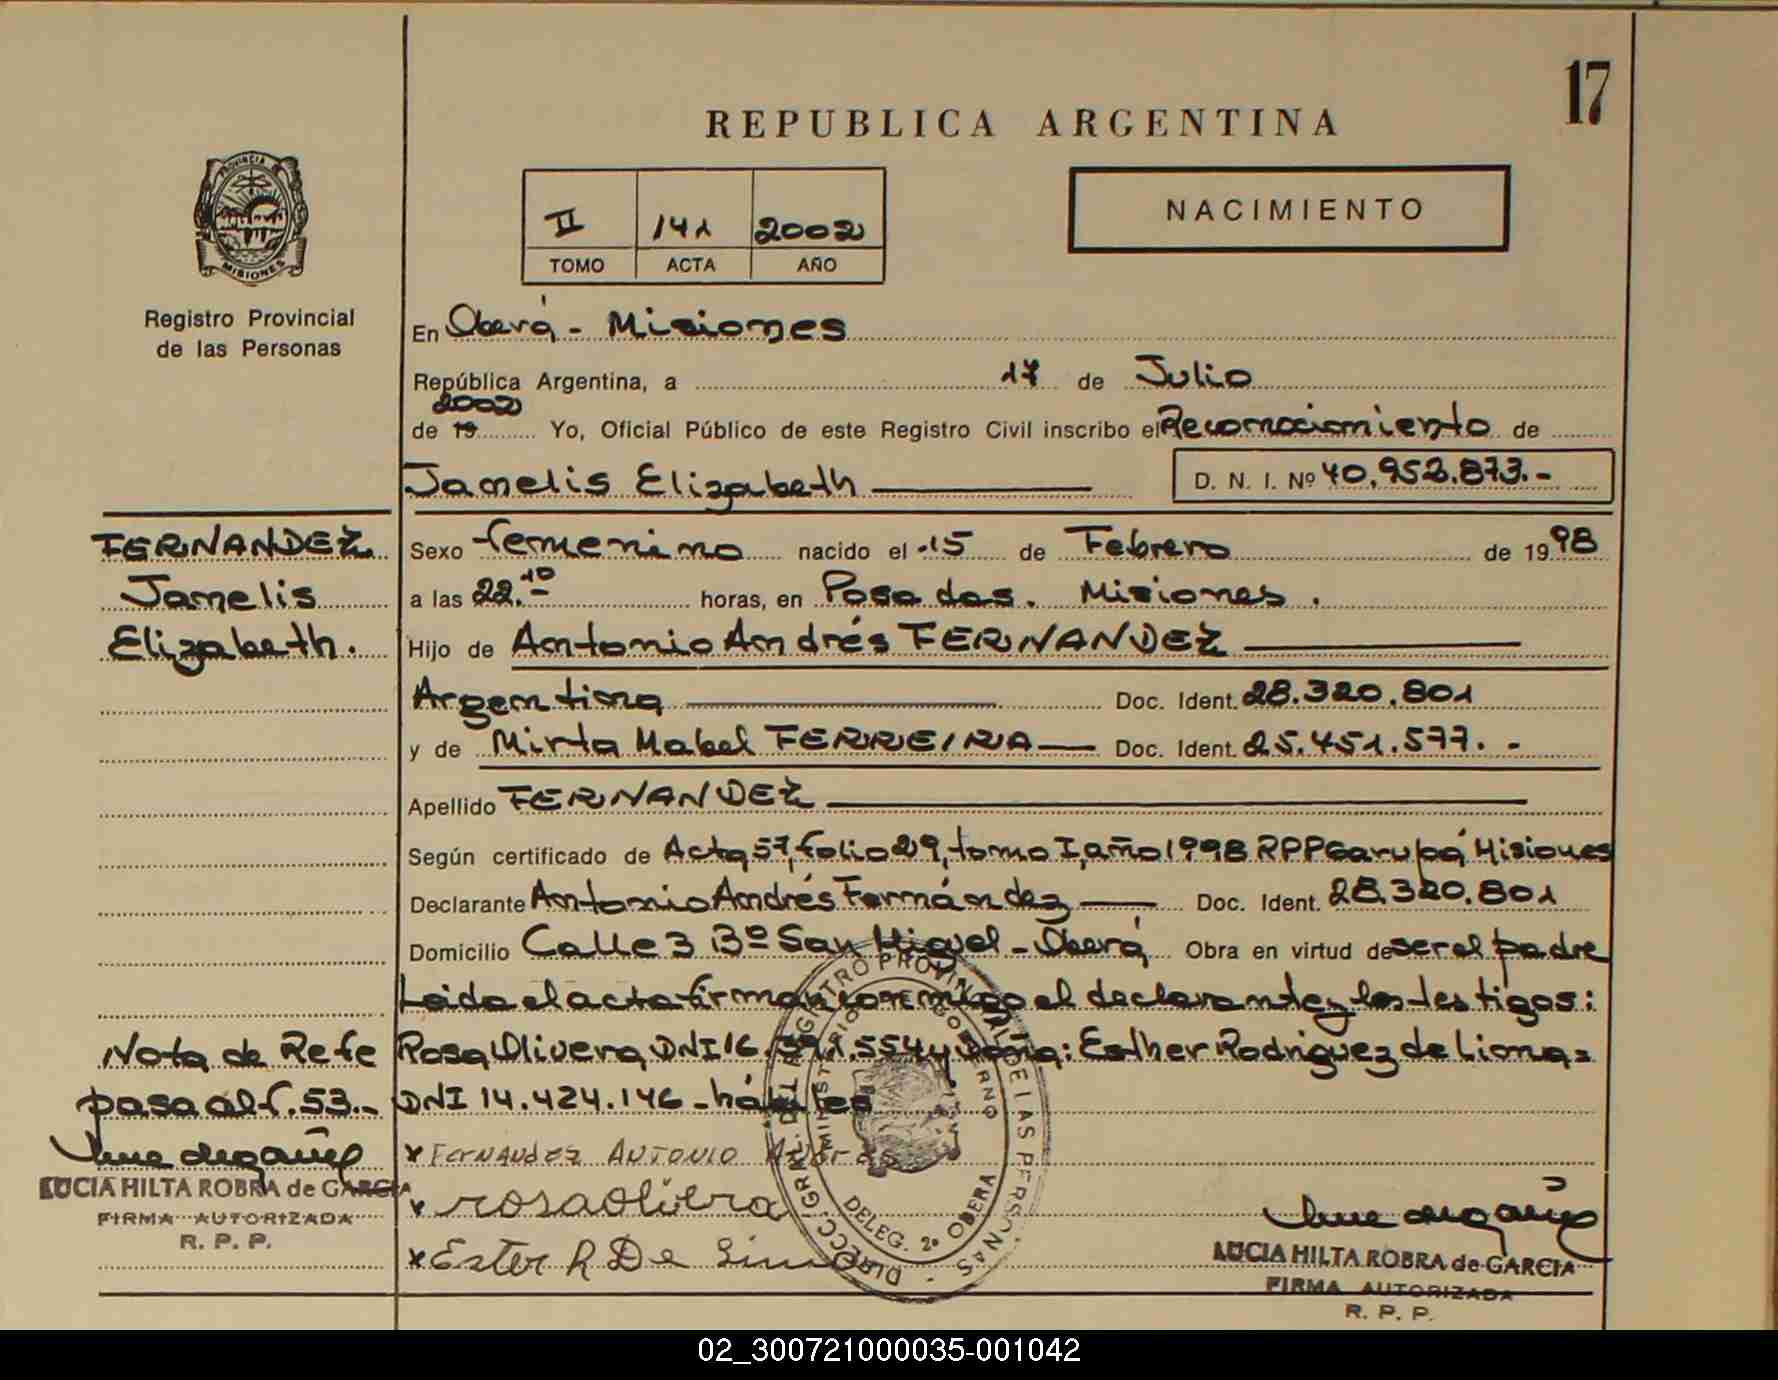 17
REPUBLICA ARGENTINA
PROVINCIA DE
MISIONES
Registro Provincial
de las Personas
II 141 2002
TOMO ACTA AÑO
NACIMIENTO
En Oberá - Misiones
República Argentina, a 17 de Julio
2002
de 19 Yo, Oficial Público de este Registro Civil inscribo el Reconocimiento de
Jamelis Elizabeth D. N. I. Nº 40.952.873.-
FERNANDEZ
Jamelis
Elizabeth.
Sexo femenino nacido el 15 de Febrero de 1998
a las 22.10 horas, en Posadas. Misiones.
Hijo de Antonio Andrés FERNANDEZ
Argentina Doc. Ident. 28.320.801
y de Mirta Mabel FERREIRA Doc. Ident. 25.451.577.-
Apellido FERNANDEZ
Según certificado de Acta 57, folio 29, tomo I, año 1998 RPP Garupá Misiones
Declarante Antonio Andrés Fernández Doc. Ident. 28.320.801
Domicilio Calle 3 Bº San Miguel - Oberá Obra en virtud de ser el padre
Leida el acta firman conmigo el declarante y los testigos:
Rosa Olivera, DNI 16.399.554 y Doña: Esther Rodriguez de Lima=
DNI 14.424.146 - hábiles
Nota de Refe
pasa al f. 53.-
LUCIA HILTA ROBRA de GARCIA
FIRMA AUTORIZADA
R. P. P.
x FERNANDEZ ANTONIO Andres
x rosa olivera
x Ester R De Lima
DIRECC. GRAL. DEL REGISTRO PROVINCIAL DE LAS PERSONAS
MINISTERIO DE GOBIERNO
DELEG. 2º OBERA
LUCIA HILTA ROBRA de GARCIA
FIRMA AUTORIZADA
R. P. P.
02_300721000035-001042